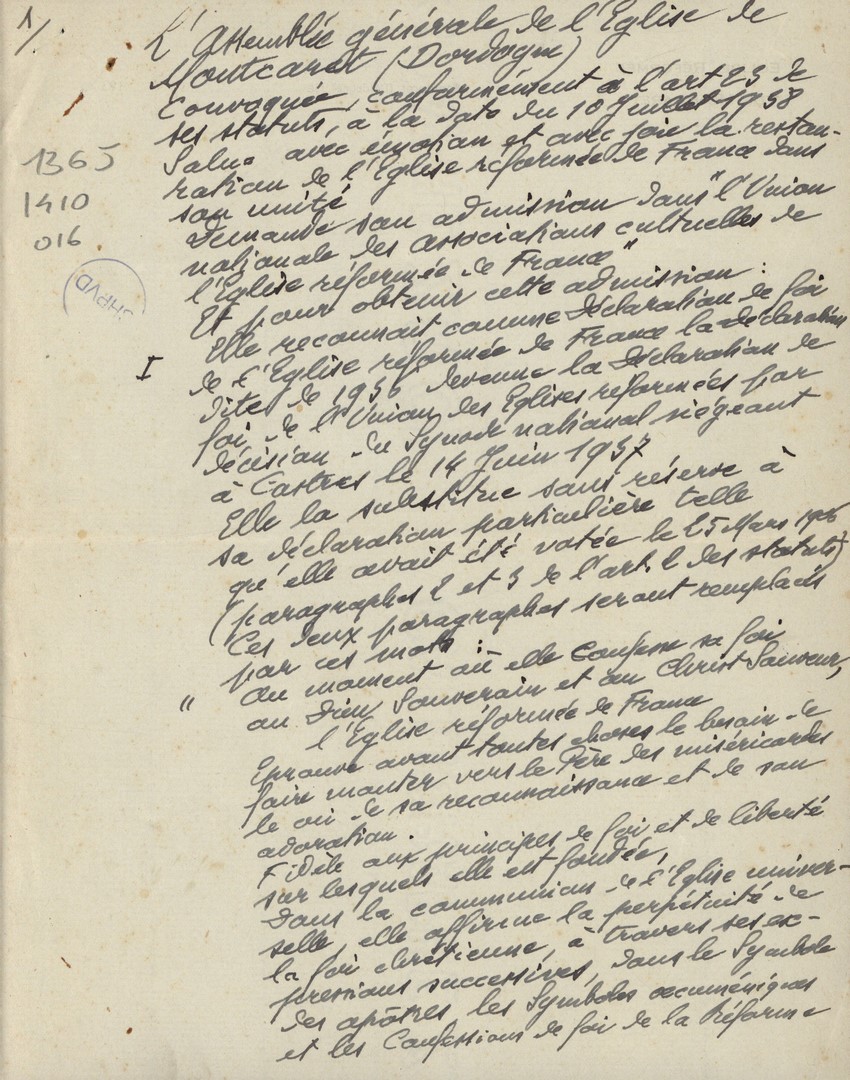 1/
L'Assemblée générale de l'Eglise de
Montcaret (Dordogne)
Convoquée, conformément à l'art 23 de
ses statuts, à la date du 10 Juillet 1938
Salue avec émotion et avec joie la restau-
ration de l'Eglise réformée de France dans
son unité
Demande son admission dans "l'Union
nationale des associations cultuelles de
l'Eglise réformée de France"
Et pour obtenir cette admission :
I Elle reconnait comme Déclaration de foi
de l'Eglise réformée de France la déclaration
dite de 1936 devenue la Déclaration de
foi de l'Union des Eglises réformées par
décision du Synode national siégeant
à Castres le 14 Juin 1937
Elle la substitue sans réserve à
sa déclaration particulière telle
qu'elle avait été votée le 25 Mars 1906
(paragraphes 2 et 3 de l'art. 2 des statuts)
Ces deux paragraphes seront remplacés
par ces mots :
" Au moment où elle confesse sa foi
au Dieu Souverain et au Christ Sauveur,
l'Eglise réformée de France
Eprouve avant toutes choses le besoin de
faire monter vers le Père des miséricordes
le cri de sa reconnaissance et de son
adoration.
Fidèle aux principes de foi et de liberté
sur lesquels elle est fondée,
Dans la communion de l'Eglise univer-
selle, elle affirme la perpétuité de
la foi chrétienne, à travers ses ex-
pressions successives, dans le Symbole
des apôtres, les Symboles œcuméniques
et les Confessions de foi de la Réforme
1365
1410
016
SHPVD